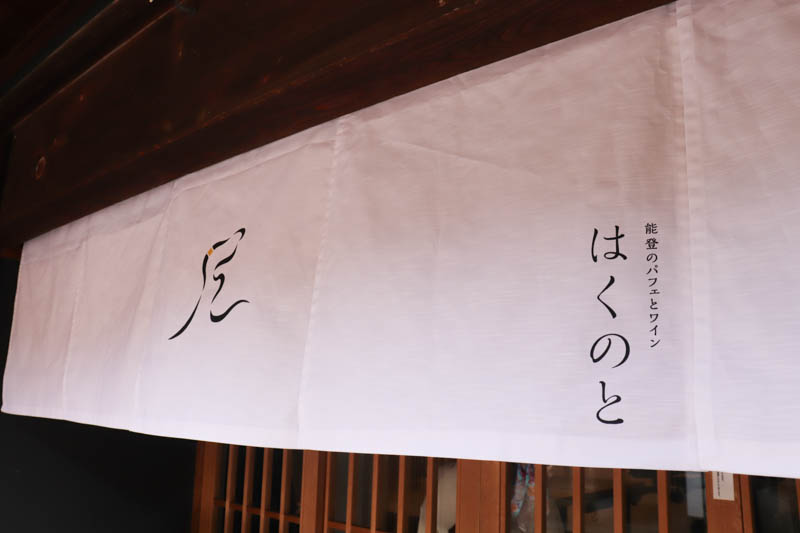 能登のパフェとワイン
はくのと